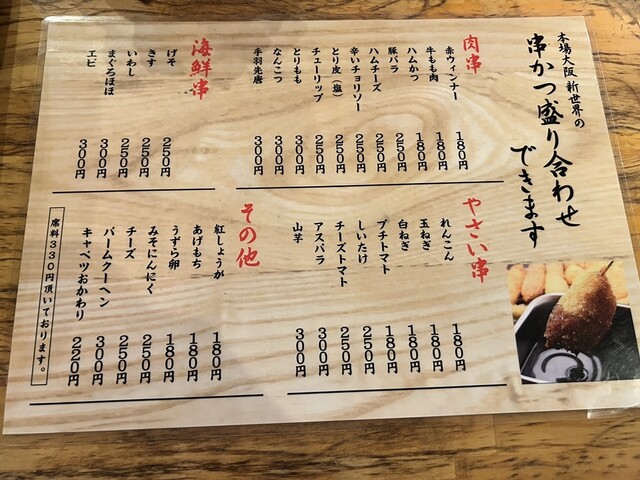 本場大阪 新世界の
串かつ盛り合わせ
できます
肉串
赤ウィンナー 180円
牛もも肉 180円
ハムかつ 180円
豚バラ 250円
ハムチーズ 250円
辛いチョリソー 250円
とり皮（塩） 250円
チューリップ 250円
とりもも 300円
なんこつ 300円
手羽先唐 300円
海鮮串
げそ 250円
きす 250円
いわし 250円
まぐろほほ 300円
エビ 300円
やさい串
れんこん 180円
玉ねぎ 180円
白ねぎ 180円
プチトマト 180円
しいたけ 250円
チーズトマト 250円
アスパラ 300円
山芋 300円
その他
紅しょうが 180円
あげもち 180円
うずら卵 180円
みそにんにく 250円
チーズ 250円
バームクーヘン 300円
キャベツおかわり 220円
席料330円頂いております。